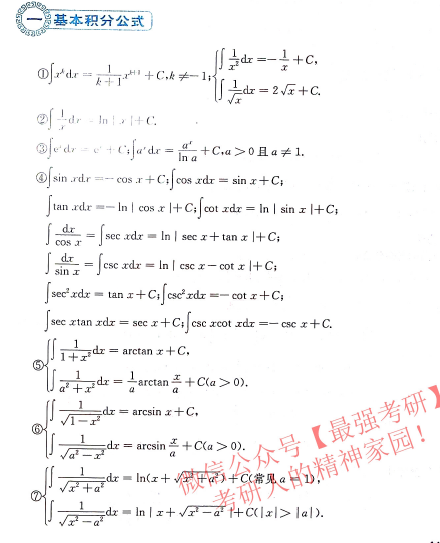 一 基本积分公式
①∫x^k dx = \frac{1}{k+1}x^{k+1} + C, k ≠ -1; { ∫\frac{1}{x^2}dx = -\frac{1}{x} + C,
∫\frac{1}{\sqrt{x}}dx = 2\sqrt{x} + C.
②∫\frac{1}{x}dx = ln | x | + C.
③∫e^x dx = e^x + C; ∫a^x dx = \frac{a^x}{ln a} + C, a > 0 且 a ≠ 1.
④∫sin xdx = -cos x + C; ∫cos xdx = sin x + C;
∫tan xdx = -ln | cos x | + C; ∫cot xdx = ln | sin x | + C;
∫\frac{dx}{cos x} = ∫sec xdx = ln | sec x + tan x | + C;
∫\frac{dx}{sin x} = ∫csc xdx = ln | csc x - cot x | + C;
∫sec^2 xdx = tan x + C; ∫csc^2 xdx = -cot x + C;
∫sec xtan xdx = sec x + C; ∫csc xcot xdx = -csc x + C.
⑤{ ∫\frac{1}{1+x^2}dx = arctan x + C,
∫\frac{1}{a^2+x^2}dx = \frac{1}{a}arctan \frac{x}{a} + C(a > 0).
⑥{ ∫\frac{1}{\sqrt{1-x^2}}dx = arcsin x + C,
∫\frac{1}{\sqrt{a^2-x^2}}dx = arcsin \frac{x}{a} + C(a > 0).
⑦{ ∫\frac{1}{\sqrt{x^2+a^2}}dx = ln(x + \sqrt{x^2+a^2}) + C(常见 a = 1),
∫\frac{1}{\sqrt{x^2-a^2}}dx = ln | x + \sqrt{x^2-a^2} | + C(| x | > | a |).
微信公众号【最强考研】
考研人的精神家园！